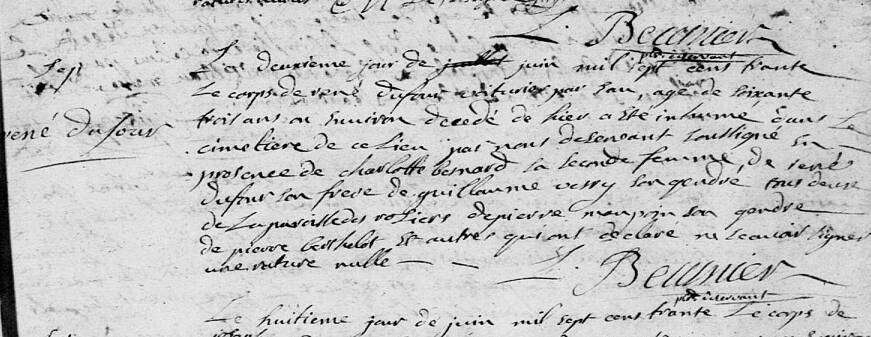 L. Becunier
ptre deservant
Sep.
René Dufour
Le deuxieme jour de juillet juin mil sept cens trante
Le corps de rené dufour voiturier par eau, agé de soixante
trois ans ou environ decedé de hier a esté inhumé dans Le
cimetiere de ce Lieu par nous deservant soussigné En
presence de charlotte bernard sa seconde femme, de rené
dufour son frere de guillaume vessy son gendre tous deux
de La paroisse des rosiers de pierre son gendre
de pierre berthelot Et autres qui ont declaré ne scauoir signer
une rature nulle
L. Becunier
ptre deservant
Le huitieme jour de juin mil sept cens trante Le corps de